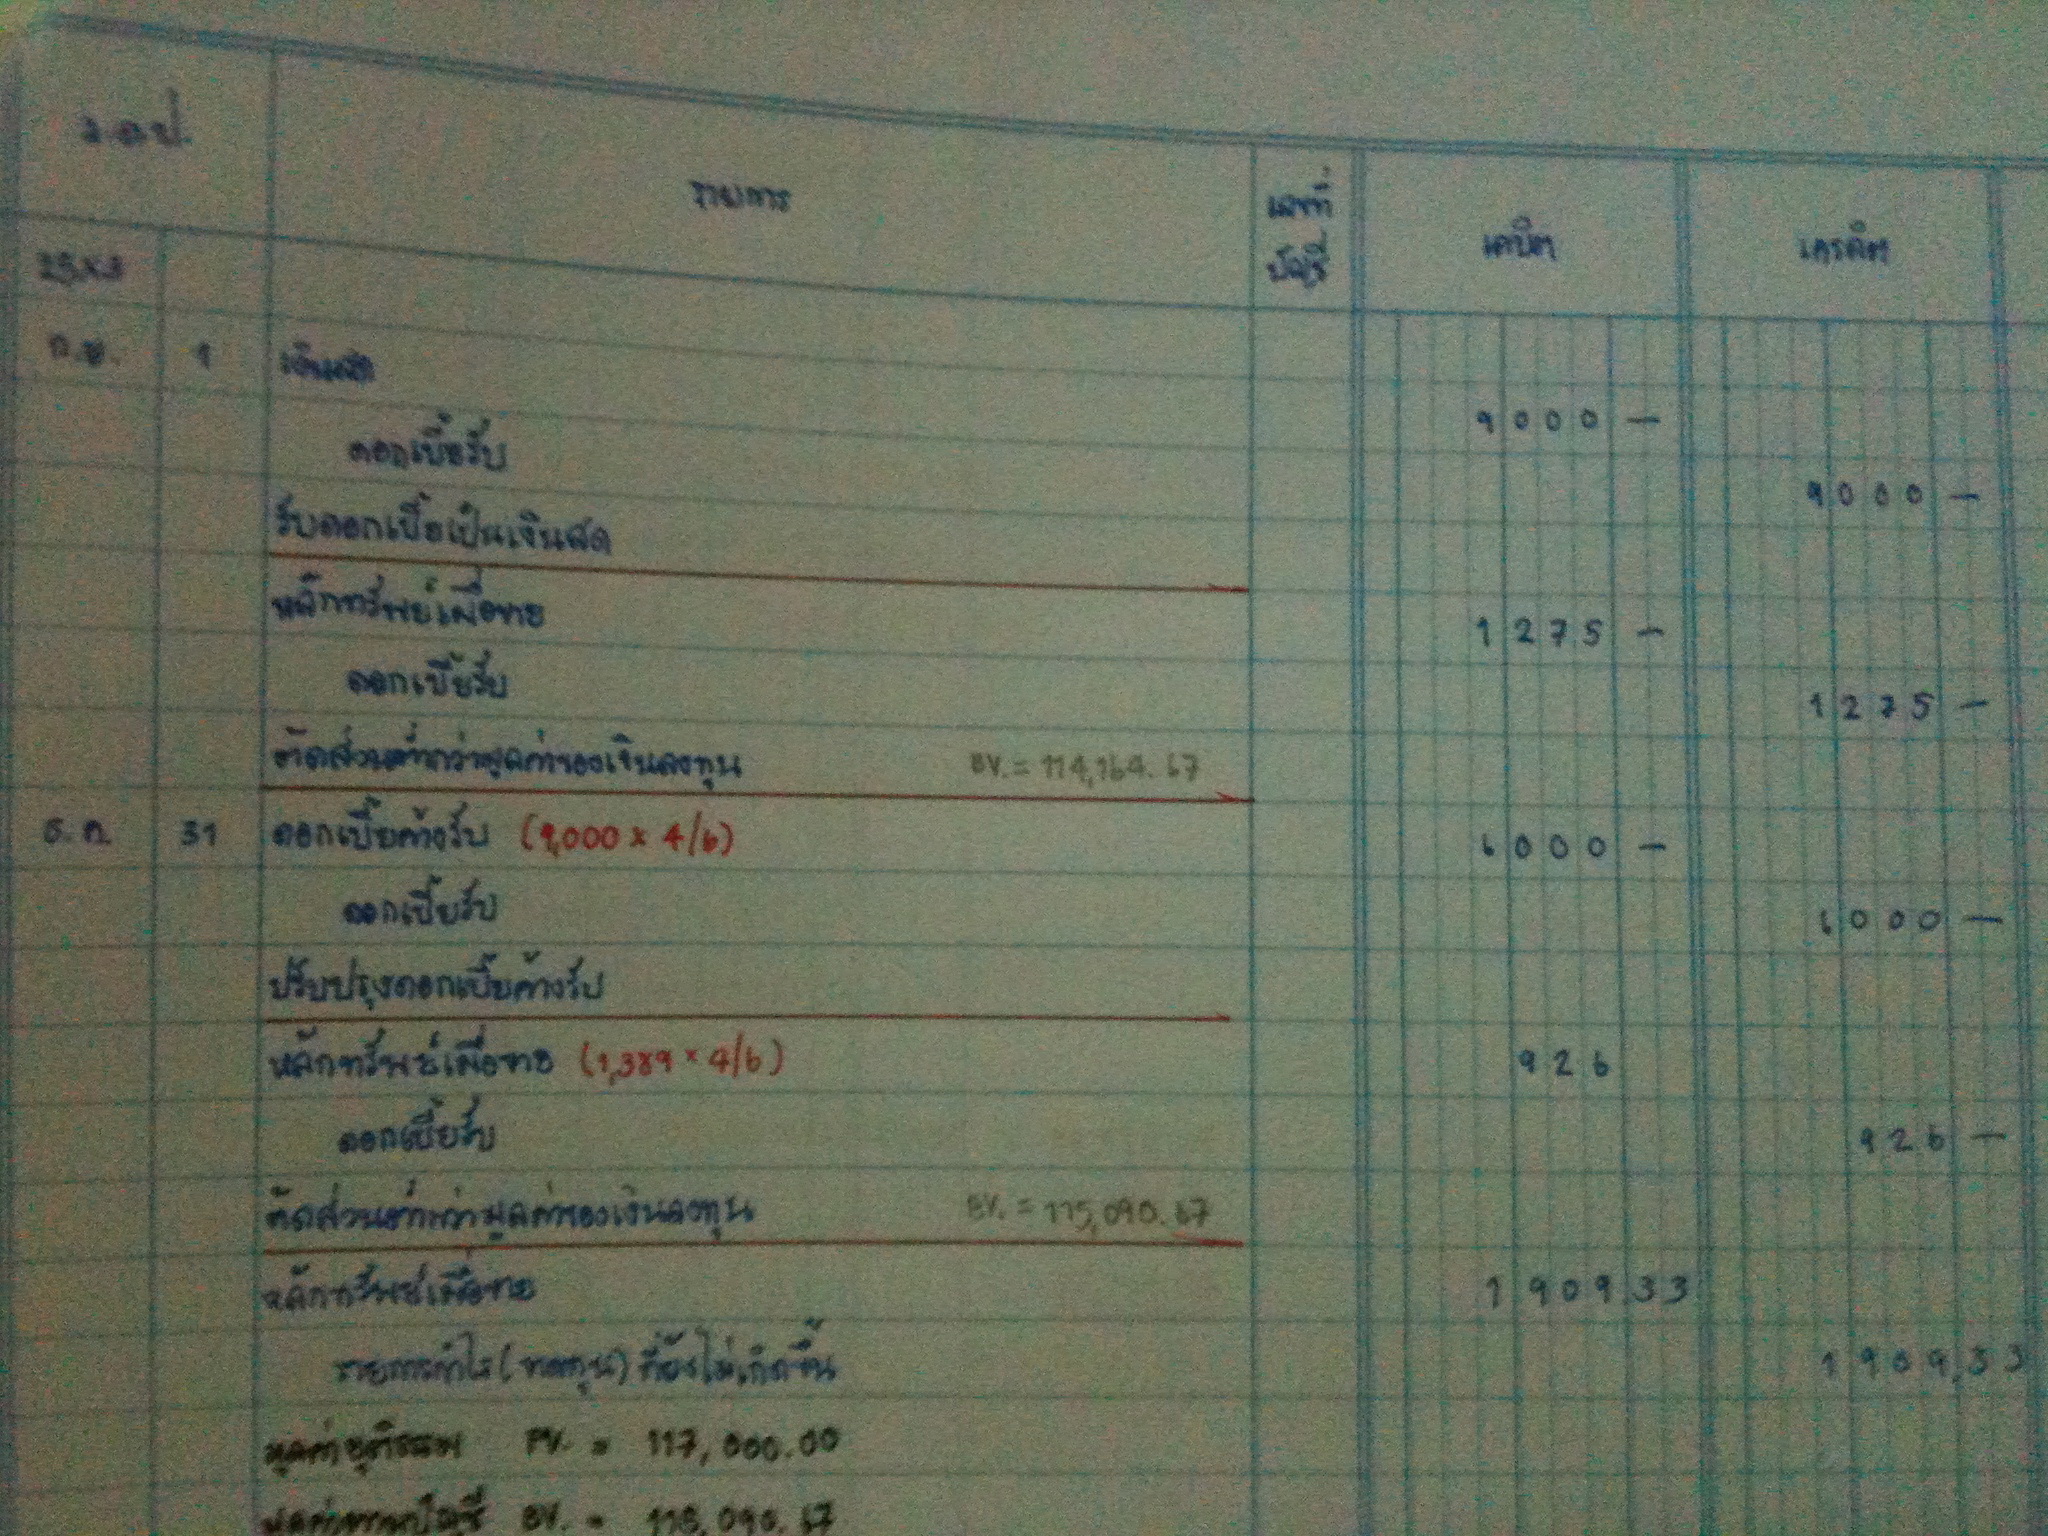 ว.ด.ป. รายการ เลขที่บัญชี เดบิต เครดิต
25x3
ก.ย. 1 เงินสด 9000 -
ดอกเบี้ยรับ 9000 -
รับดอกเบี้ยเป็นเงินสด
หลักทรัพย์เผื่อขาย 1275 -
ดอกเบี้ยรับ 1275 -
ตัดส่วนต่ำกว่ามูลค่าของเงินลงทุน BV. = 114,164.67
ธ.ค. 31 ดอกเบี้ยค้างรับ (9,000 x 4/6) 6000 -
ดอกเบี้ยรับ 6000 -
ปรับปรุงดอกเบี้ยค้างรับ
หลักทรัพย์เผื่อขาย (1,389 x 4/6) 926
ดอกเบี้ยรับ 926 -
ตัดส่วนต่ำกว่ามูลค่าของเงินลงทุน BV. = 115,090.67
หลักทรัพย์เผื่อขาย 1909.33
รายการกำไร(ขาดทุน)ที่ยังไม่เกิดขึ้น 1909.33
มูลค่ายุติธรรม FV. = 117,000.00
มูลค่าตามบัญชี BV. = 115,090.67